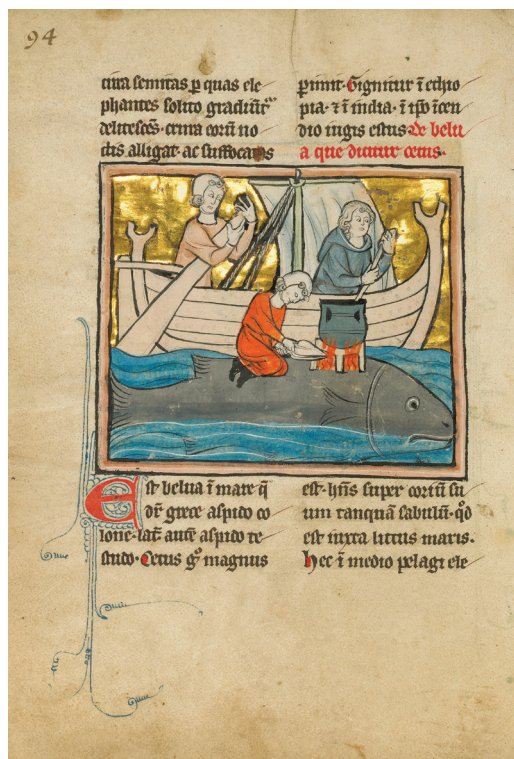 94
cira semitas p quas ele
phantes solito gradiūt
delitescēs · crura eorū no
dis alligat · ac suffocatos
ꝑimit · Gignitur ī ethio
pia · ⁊ ī india · ī ip̄o īcen
dio iugis estus · De belu
a que dicitur cetus ·
Est belua ī mare q̄
dr̄ grece aspido co
lone · lat̄ aut̄ aspido te
studo · Cetus g° magnus
est · hn̄s super coriū su
um tanquā sabulū · qd̄
est iuxta littus maris ·
hec ī medio pelagi ele